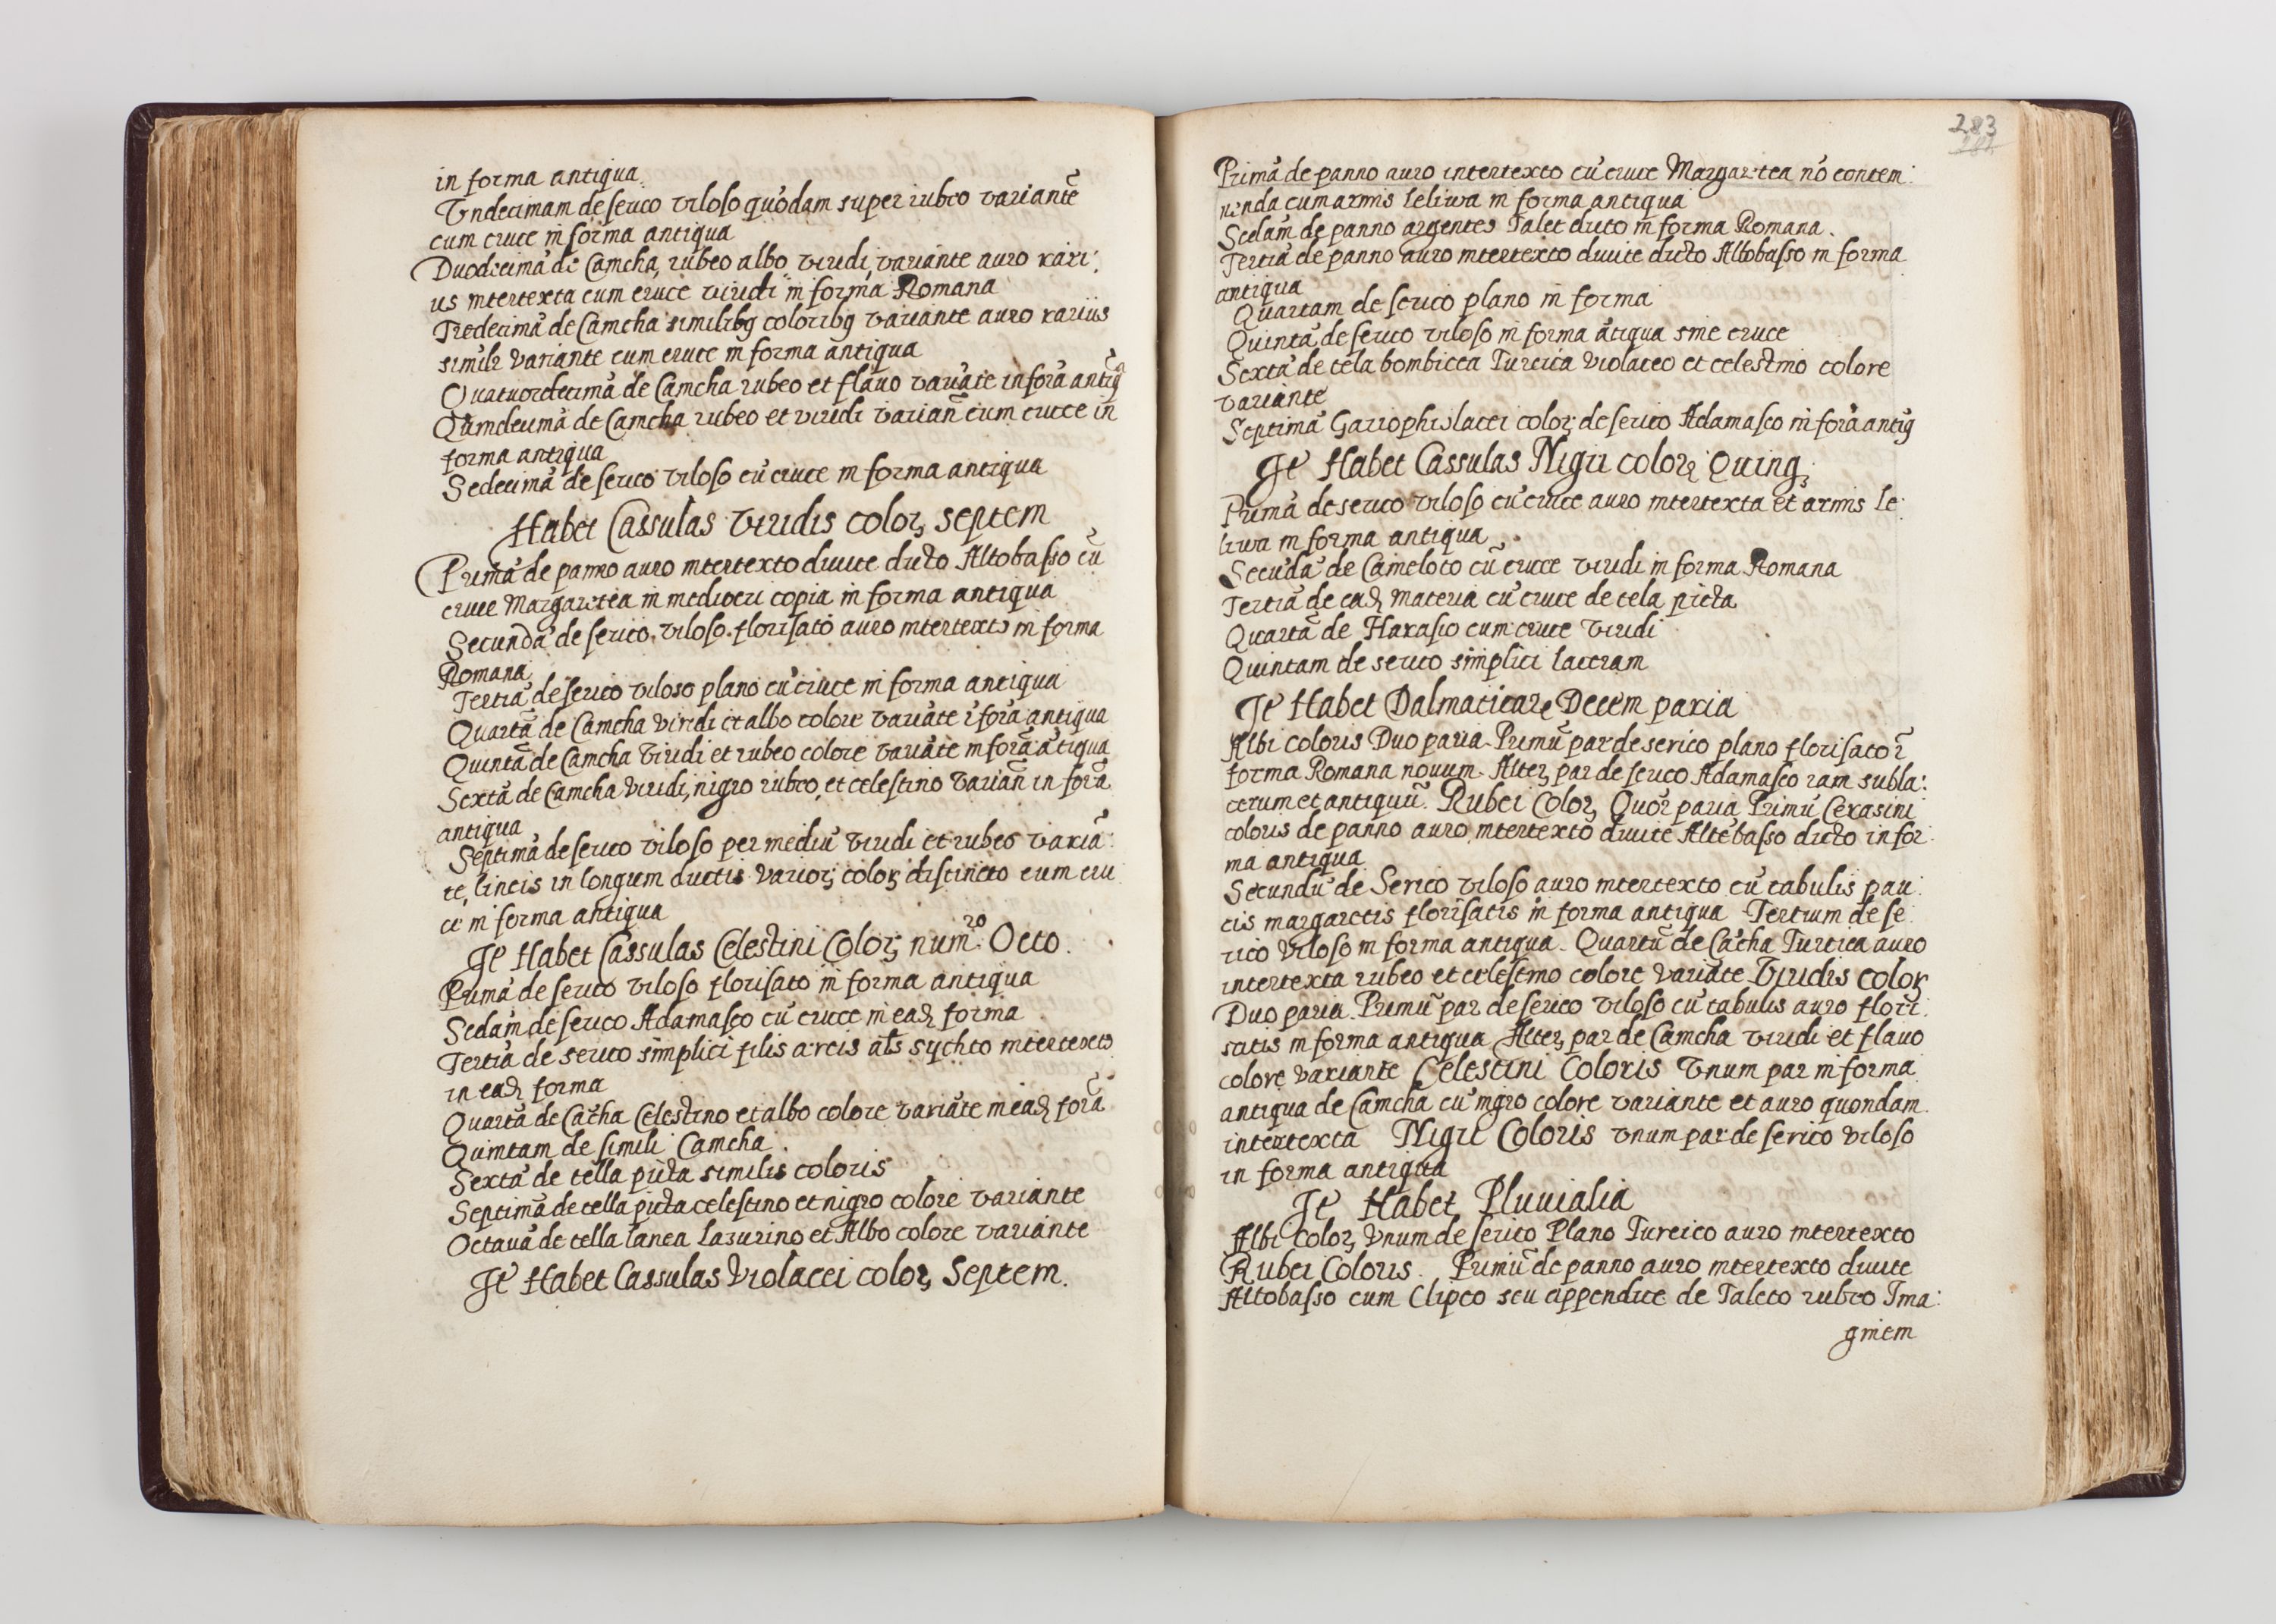 in forma antiqua
Vndecimam de serico viloso quõdam super rubeo variantẽ
cum cruce in forma antiqua
Duodecimã de Camcha, rubeo albo viridi, variante auro rari:
us intertexta cum cruce viridi in forma Romana
Tredecimã de Camcha similibꝫ coloribꝫ variante auro rarius
simili variante cum cruce in forma antiqua
Quatuordecimã de Camcha rubeo et flauo variãte in forã antiq̃
Quindecimã de Camcha rubeo et viridi varian̄ cum cruce in
forma antiqua
Sedecimã de serico viloso cũ cruce in forma antiqua
Habet Cassulas viridis colorꝫ septem
Primã de panno auro intertexto diuite dicto Altobasso cũ
cruce Margaritea in mediocri copia in forma antiqua
Secundã de serico viloso florisato auro intertexto in forma
Romana
Tertiã de serico viloso plano cũ cruce in forma antiqua
Quartã de Camcha viridi et albo colore variãte ĩ forã antiqua
Quintã de Camcha viridi et rubeo colore variãte in forã ãtiqua
Sextã de Camcha viridi, nigro rubeo, et celestino varian̄ in forã
antiqua
Septimã de serico viloso per mediũ viridi et rubeo variã:
te, lineis in longum ductis variorꝫ colorꝫ distincto cum cru
ce in forma antiqua
Jt̃ Habet Cassulas Celestini Colorꝫ num:ro Octo.
Primã de serico viloso florisato in forma antiqua
Sc̃dam de serico Adamasco cũ cruce in eadꝫ forma
Tertiã de serico simplici filis areis al̃s sychto intertexto
in eadꝫ forma
Quartã de Cãcha Celestino et albo colore variãte in eadꝫ forã
Quintam de simili Camcha
Sextã de tella picta similis coloris
Septimã de tella picta celestino et nigro colore variante
Octauã de tella lanea Lazurino et Albo colore variante
Jt̃ Habet Cassulas Violacei colorꝫ Septem.
283
Primã de panno auro intertexto cũ cruce Margaritea nõ contem:
nenda cum armis Leliwa in forma antiqua
Sc̃dam de panno argenteo Talet dicto in forma Romana.
Tertiã de panno auro intertexto diuite dicto Altobasso in forma
antiqua
Quartam de serico plano in forma
Quintã de serico viloso in forma ãtiqua sine cruce
Sextã de tela bombicea Turcica violaceo et celestino colore
variante
Septimã Gariophilacei colorꝫ de serico Adamasco in forã antiq̃
Jt̃ Habet Cassulas Nigri colorꝫ Quinqꝫ
Primã de serico viloso cũ cruce auro intertexta et armis Le:
liwa in forma antiqua
Secũdã de Cameloto cũ cruce viridi in forma Romana
Tertiã de eadꝫ materia cũ cruce de tela picta
Quartã de Harasio cum cruce viridi
Quintam de serico simplici laceram
Jt̃ Habet Dalmaticarꝫ Decem paria
Albi coloris Duo paria. Primũ par de serico plano florisato ĩ
forma Romana nouum. Alterꝫ par de serico Adamasco iam subla:
cerum et antiquũ. Rubei Colorꝫ Quõr paria Primũ Cerasini
coloris de panno auro intertexto diuite Altebasso dicto in for:
ma antiqua
Secundũ de Serico viloso auro intertexto cũ tabulis pau:
cis margaretis florisatis in forma antiqua Tertium de se:
rico viloso in forma antiqua. Quartũ de Cãcha Turcica auro
intertexta rubeo et celestino colore variãte Viridis colorꝫ
Duo paria. Primũ par de serico viloso cũ tabulis auro flori:
satis in forma antiqua Alterꝫ par de Camcha viridi et flauo
colore variante Celestini Coloris Vnum par in forma
antiqua de Camcha cũ nigro colore variante et auro quondam
intertexta Nigri Coloris vnum par de serico viloso
in forma antiqua
Jt̃ Habet Pluuialia
Albi Colorꝫ Vnum de serico Plano Turcico auro intertexto
Rubei Coloris. Primũ de panno auro intertexto diuite
Altobasso cum Clipeo seu appendice de Taleto rubeo Ima:
ginem